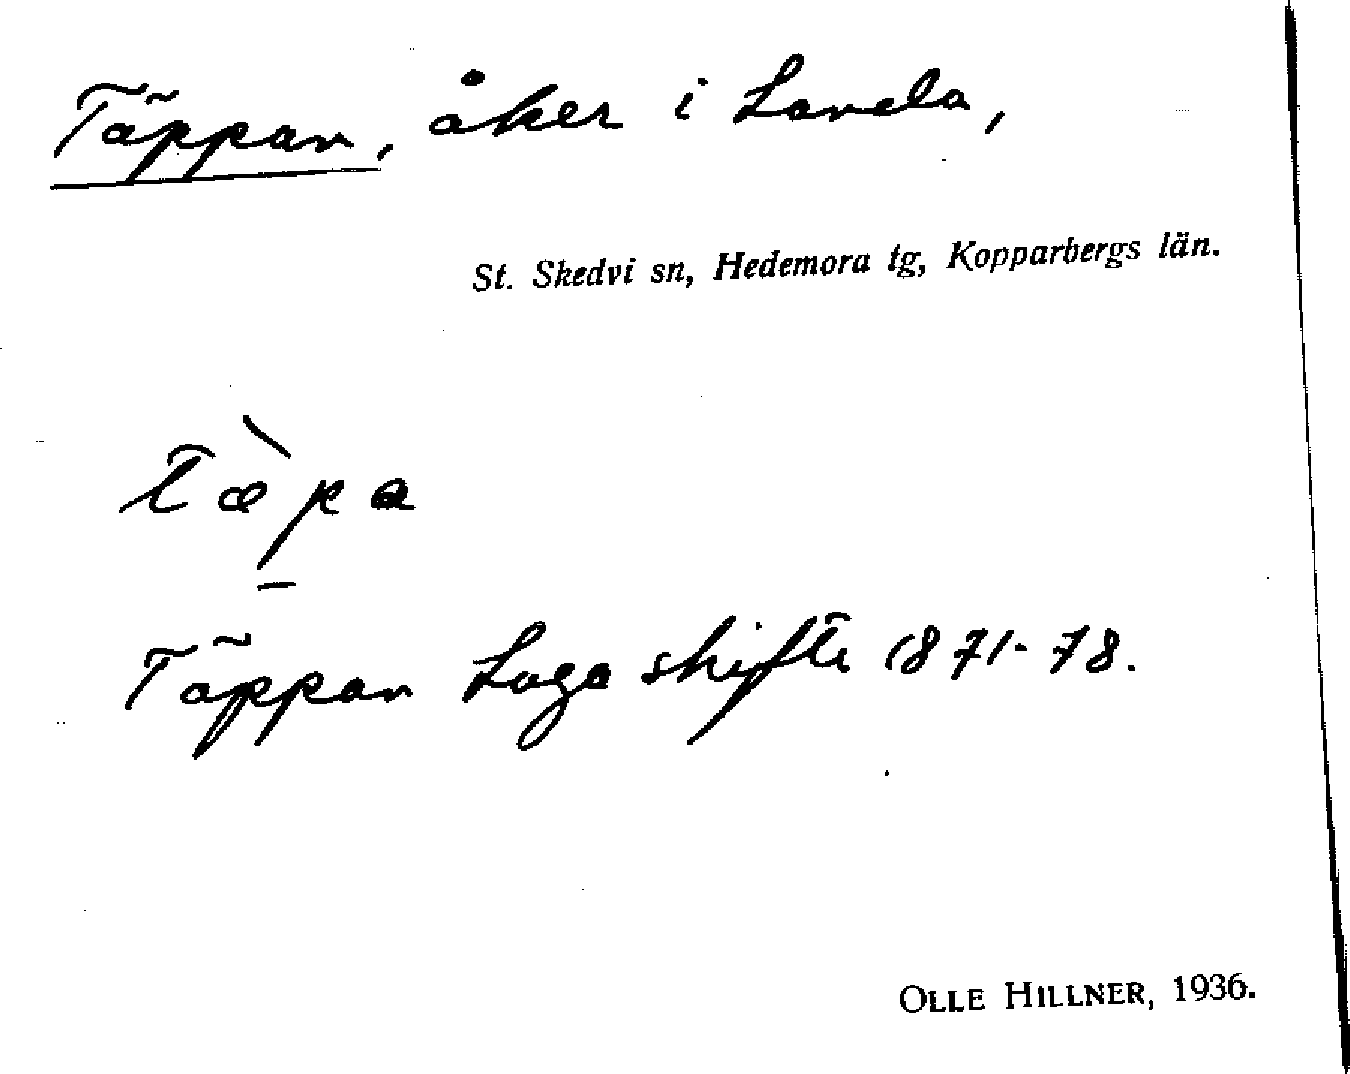 Täppan, åker i Landa,
St. Skedvi sn, Hedemora tg, Kopparbergs län.
tæ̀p̱a
Täppan Laga skifte 1871-78.
OLLE HILLNER, 1936.